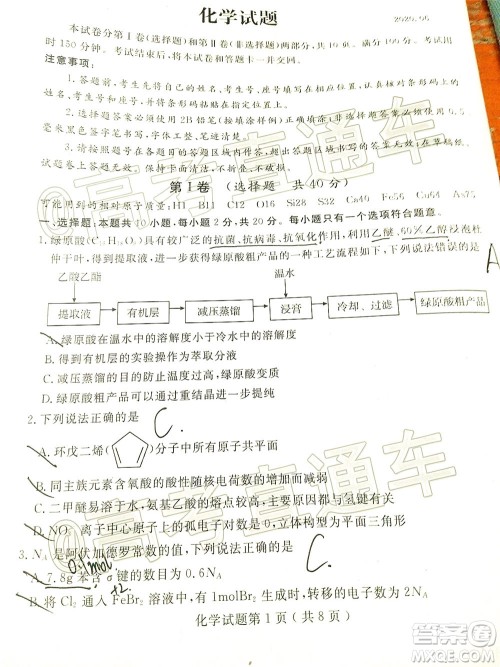 化学试题
2020.06
本试卷分第Ⅰ卷(选择题)和第Ⅱ卷(非选择题)两部分,共8页。满分100分。考试用
时150分钟。考试结束后,将本试卷和答题卡一并交回。
注意事项:
1.答题前,考生先将自己的姓名、考生号、座号填写在相应位置,认真核对条形码上的姓
名、考生号和座号,并将条形码粘贴在指定位置上。
2.选择题答案必须使用2B铅笔(按填涂样例)正确填涂;非选择题答案必须使用0.5
毫米黑色签字笔书写,字体工整、笔迹清楚。
3.请按照题号在各题目的答题区域内作答,超出答题区域书写的答案无效;在草稿纸、
试题卷上答题无效。保持卡面清洁,不折叠、不破损。
第Ⅰ卷 (选择题 共40分)
可能用到的相对原子质量:H1 B11 C12 O16 Si28 Cl35.5 Ca40 Fe56 Ga70 As75
一、选择题:本题共10小题,每小题2分,共20分。每小题只有一个选项符合题意。
1.绿原酸(C₁₆H₁₈O₉)具有较广泛的抗菌、抗病毒、抗氧化作用,利用乙醚、60%乙醇浸泡杜
仲干叶,得到提取液,进一步获得绿原酸粗产品的一种工艺流程如下,下列说法错误的是
A
乙酸乙酯
温水
提取液
有机层
减压蒸馏
浸膏
冷却、过滤
绿原酸粗产品
A.绿原酸在温水中的溶解度小于冷水中的溶解度
B.得到有机层的实验操作为萃取分液
C.减压蒸馏的目的防止温度过高,绿原酸变质
D.绿原酸粗产品可以通过重结晶进一步提纯
2.下列说法正确的是
C.
A.环戊二烯( )分子中所有原子共平面
B.同主族元素含氧酸的酸性随核电荷数的增大而减弱
C.二甲醚易溶于水,氨基乙酸的熔点较高,主要原因都与氢键有关
D.NO 离子中心原子上的孤电子对数为0,立体构型为平面三角形
3.Nₐ是阿伏加德罗常数的值,下列说法正确的是
C.
0.1mol
A.7.8g苯含σ键的数目为0.6Nₐ
+2
B.将Cl₂通入FeBr₂溶液中,有1molBr₂生成时,转移的电子数为2Nₐ
化学试题第1页(共8页)
@高考直通车
@高考直通车